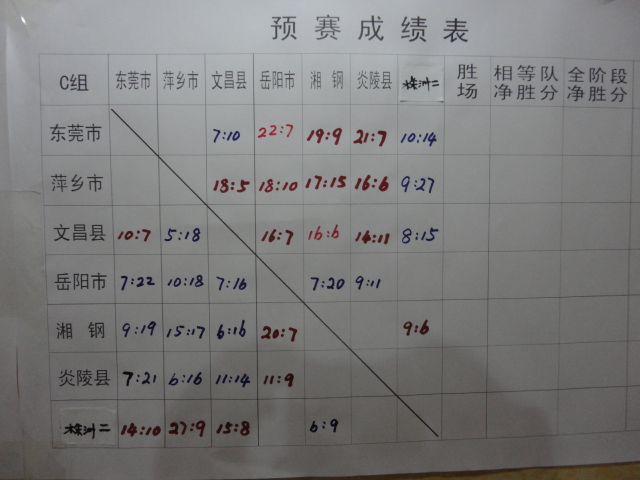 预赛成绩表
C组 东莞市 萍乡市 文昌县 岳阳市 湘钢 炎陵县 株洲二 胜场 相等队净胜分 全阶段净胜分
东莞市 7:10 22:7 19:9 21:7 10:14
萍乡市 18:5 18:10 17:15 16:6 9:27
文昌县 10:7 5:18 16:7 16:6 14:11 8:15
岳阳市 7:22 10:18 7:16 7:20 9:11
湘钢 9:19 15:17 6:16 20:7 9:6
炎陵县 7:21 6:16 11:14 11:9
株洲二 14:10 27:9 15:8 6:9